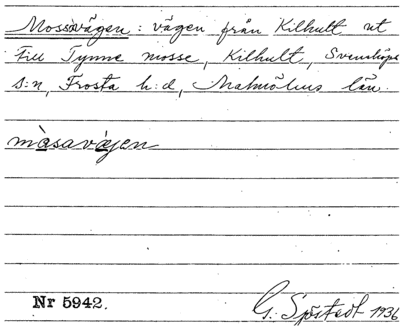 Mossavägen: vägen från Kilhult ut
till Tynne mosse, Kilhult, Svensköps
s:n, Frosta h:d, Malmöhus län.
måsavägen
Nr 5942.
G. Sjöstedt 1936